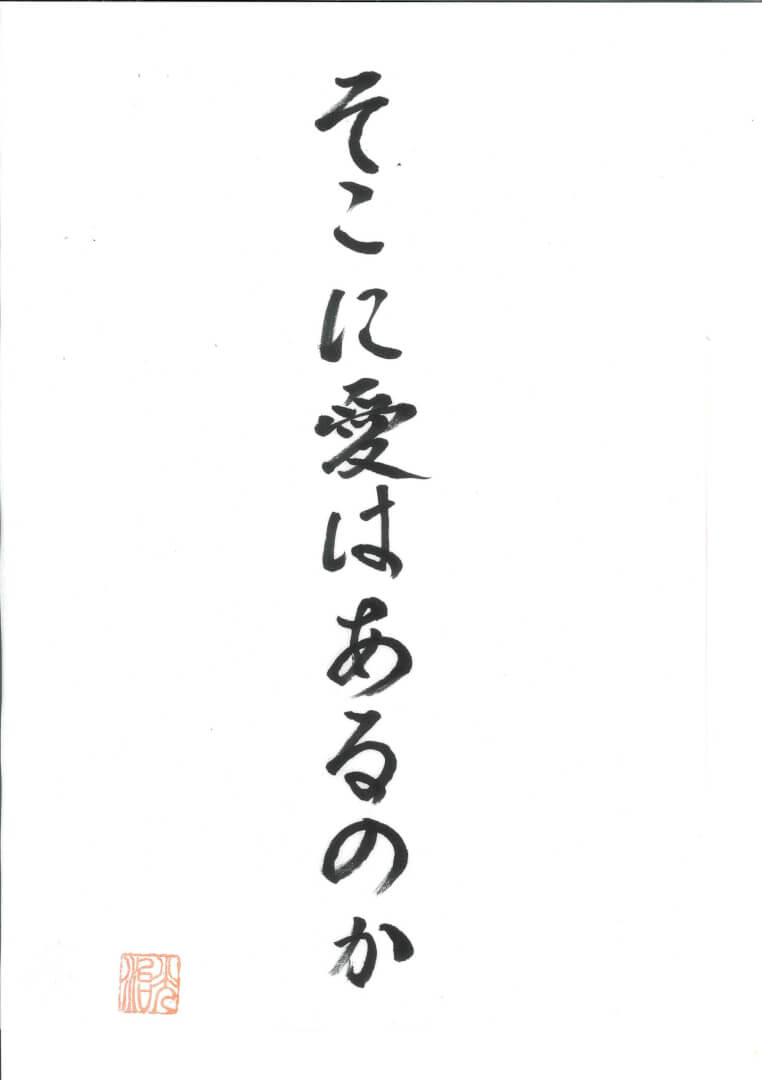 そこに愛はあるのか